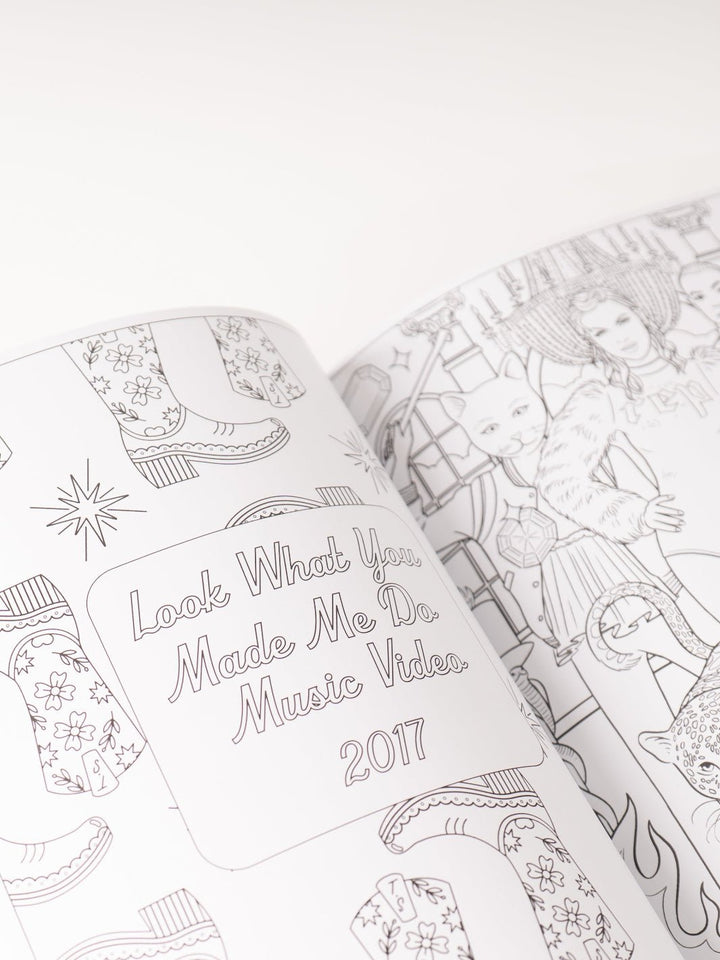 Look What You
Made Me Do
Music Video
2017
TS
TS